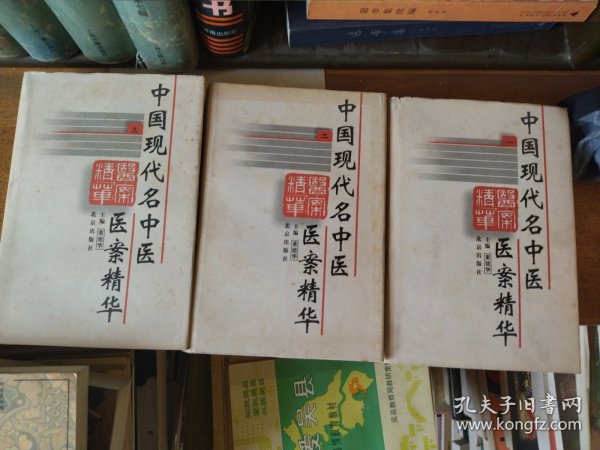 书
中国现代名中医
医案精华
三
醫案
精華
主编 董建华
北京出版社
中国现代名中医
医案精华
二
醫案
精華
主编 董建华
北京出版社
中国现代名中医
医案精华
一
醫案
精華
主编 董建华
北京出版社
知我吴县
爱我吴县
兴我吴县
爱吴县
吴县教育局教研室
孔夫子旧书网
www.kongfz.com